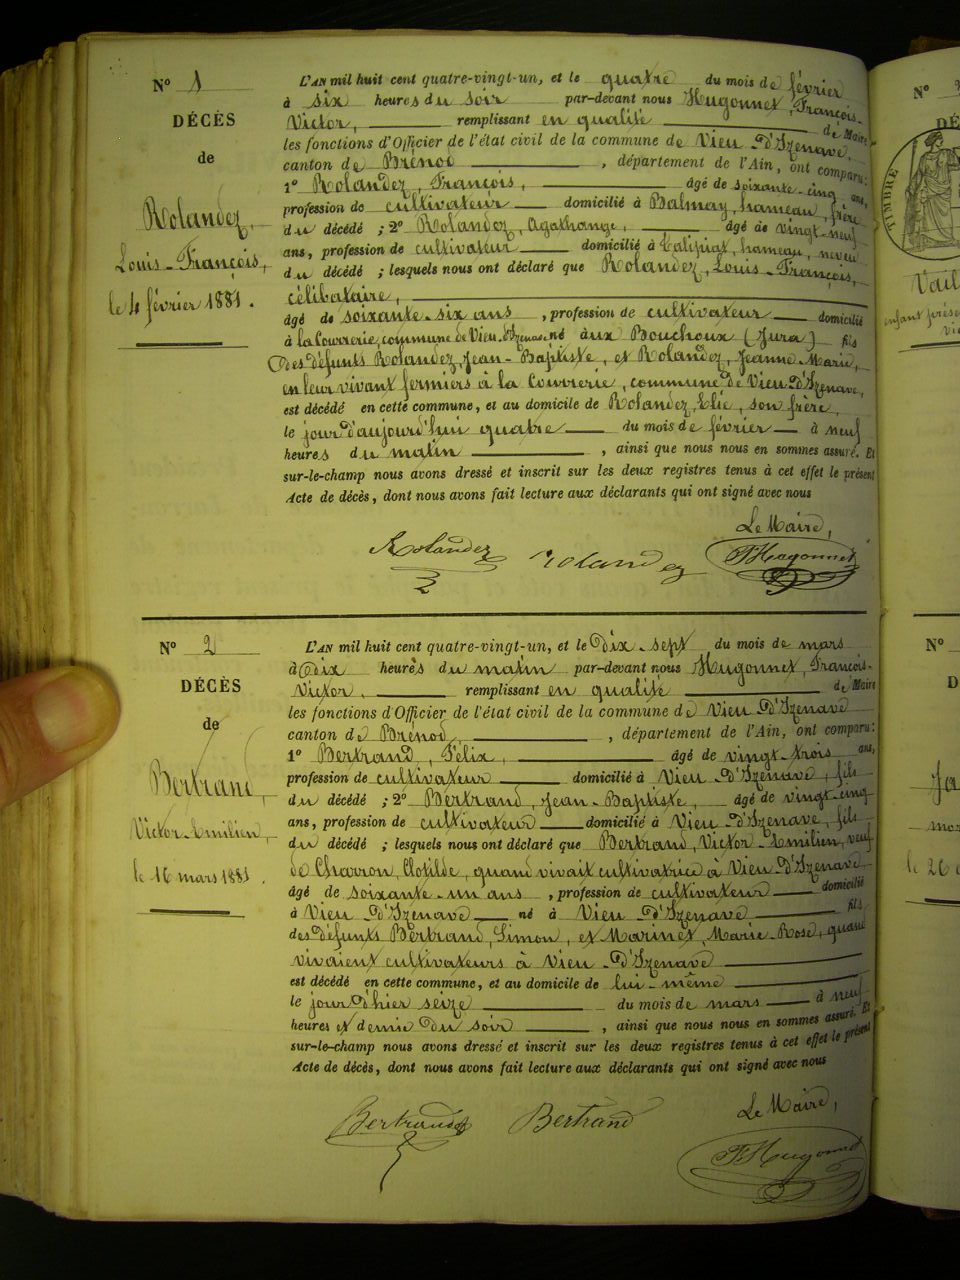 N° 1
DÉCÈS
de
Rolandez,
Louis-François,
le 4 février 1881.
L'AN mil huit cent quatre-vingt-un, et le quatre du mois de février
à six heures du soir par-devant nous Hugonnet, François-
Victor, remplissant en qualité de Maire
les fonctions d'Officier de l'état civil de la commune de Vieu d'Izenave,
canton de Brénod, département de l'Ain, ont comparu:
1° Rolandez, François, âgé de soixante-cinq ans,
profession de cultivateur domicilié à Balmay, hameau, frère
du décédé ; 2° Rolandez, Agathange, âgé de vingt-neuf
ans, profession de cultivateur domicilié à hameau, neveu
du décédé ; lesquels nous ont déclaré que Rolandez, Louis-François,
célibataire,
âgé de soixante-six ans, profession de cultivateur domicilié
à la Courrerie, commune de Vieu-d'Izenave né aux Bouchoux (Jura) fils
des défunts Rolandez, Jean-Baptiste, et Rolandez, Jeanne-Marie,
en leur vivant fermiers à la Courrerie, commune de Vieu-d'Izenave,
est décédé en cette commune, et au domicile de Rolandez, Élie, son frère,
le jour d'aujourd'hui quatre du mois de février à neuf
heures du matin, ainsi que nous nous en sommes assuré. Et
sur-le-champ nous avons dressé et inscrit sur les deux registres tenus à cet effet le présent
Acte de décès, dont nous avons fait lecture aux déclarants qui ont signé avec nous
Le Maire,
Rolandez Rolandez FHugonnet
N° 2
DÉCÈS
de
Bertrand,
Victor-Emilien,
le 16 mars 1881.
L'AN mil huit cent quatre-vingt-un, et le dix-sept du mois de mars
à dix heures du matin par-devant nous Hugonnet, François-
Victor, remplissant en qualité de Maire
les fonctions d'Officier de l'état civil de la commune de Vieu d'Izenave
canton de Brénod, département de l'Ain, ont comparu:
1° Bertrand, Félix, âgé de vingt-trois ans,
profession de cultivateur domicilié à Vieu d'Izenave, fils
du décédé ; 2° Bertrand, Jean-Baptiste, âgé de vingt-cinq
ans, profession de cultivateur domicilié à Vieu d'Izenave, fils
du décédé ; lesquels nous ont déclaré que Bertrand, Victor-Emilien, veuf
de Charron, Clotilde, quand vivait cultivatrice à Vieu d'Izenave
âgé de soixante-un ans, profession de cultivateur domicilié
à Vieu d'Izenave né à Vieu d'Izenave fils
des défunts Bertrand, Simon, et Marinet, Marie-Rose, quand
vivaient cultivateurs à Vieu d'Izenave
est décédé en cette commune, et au domicile de lui-même
le jour d'hier seize du mois de mars à neuf
heures et demie du soir, ainsi que nous nous en sommes assuré. Et
sur-le-champ nous avons dressé et inscrit sur les deux registres tenus à cet effet le présent
Acte de décès, dont nous avons fait lecture aux déclarants qui ont signé avec nous
Le Maire,
Bertrand Bertrand FHugonnet
N°
TIMBRE
enfant
N°
le 26